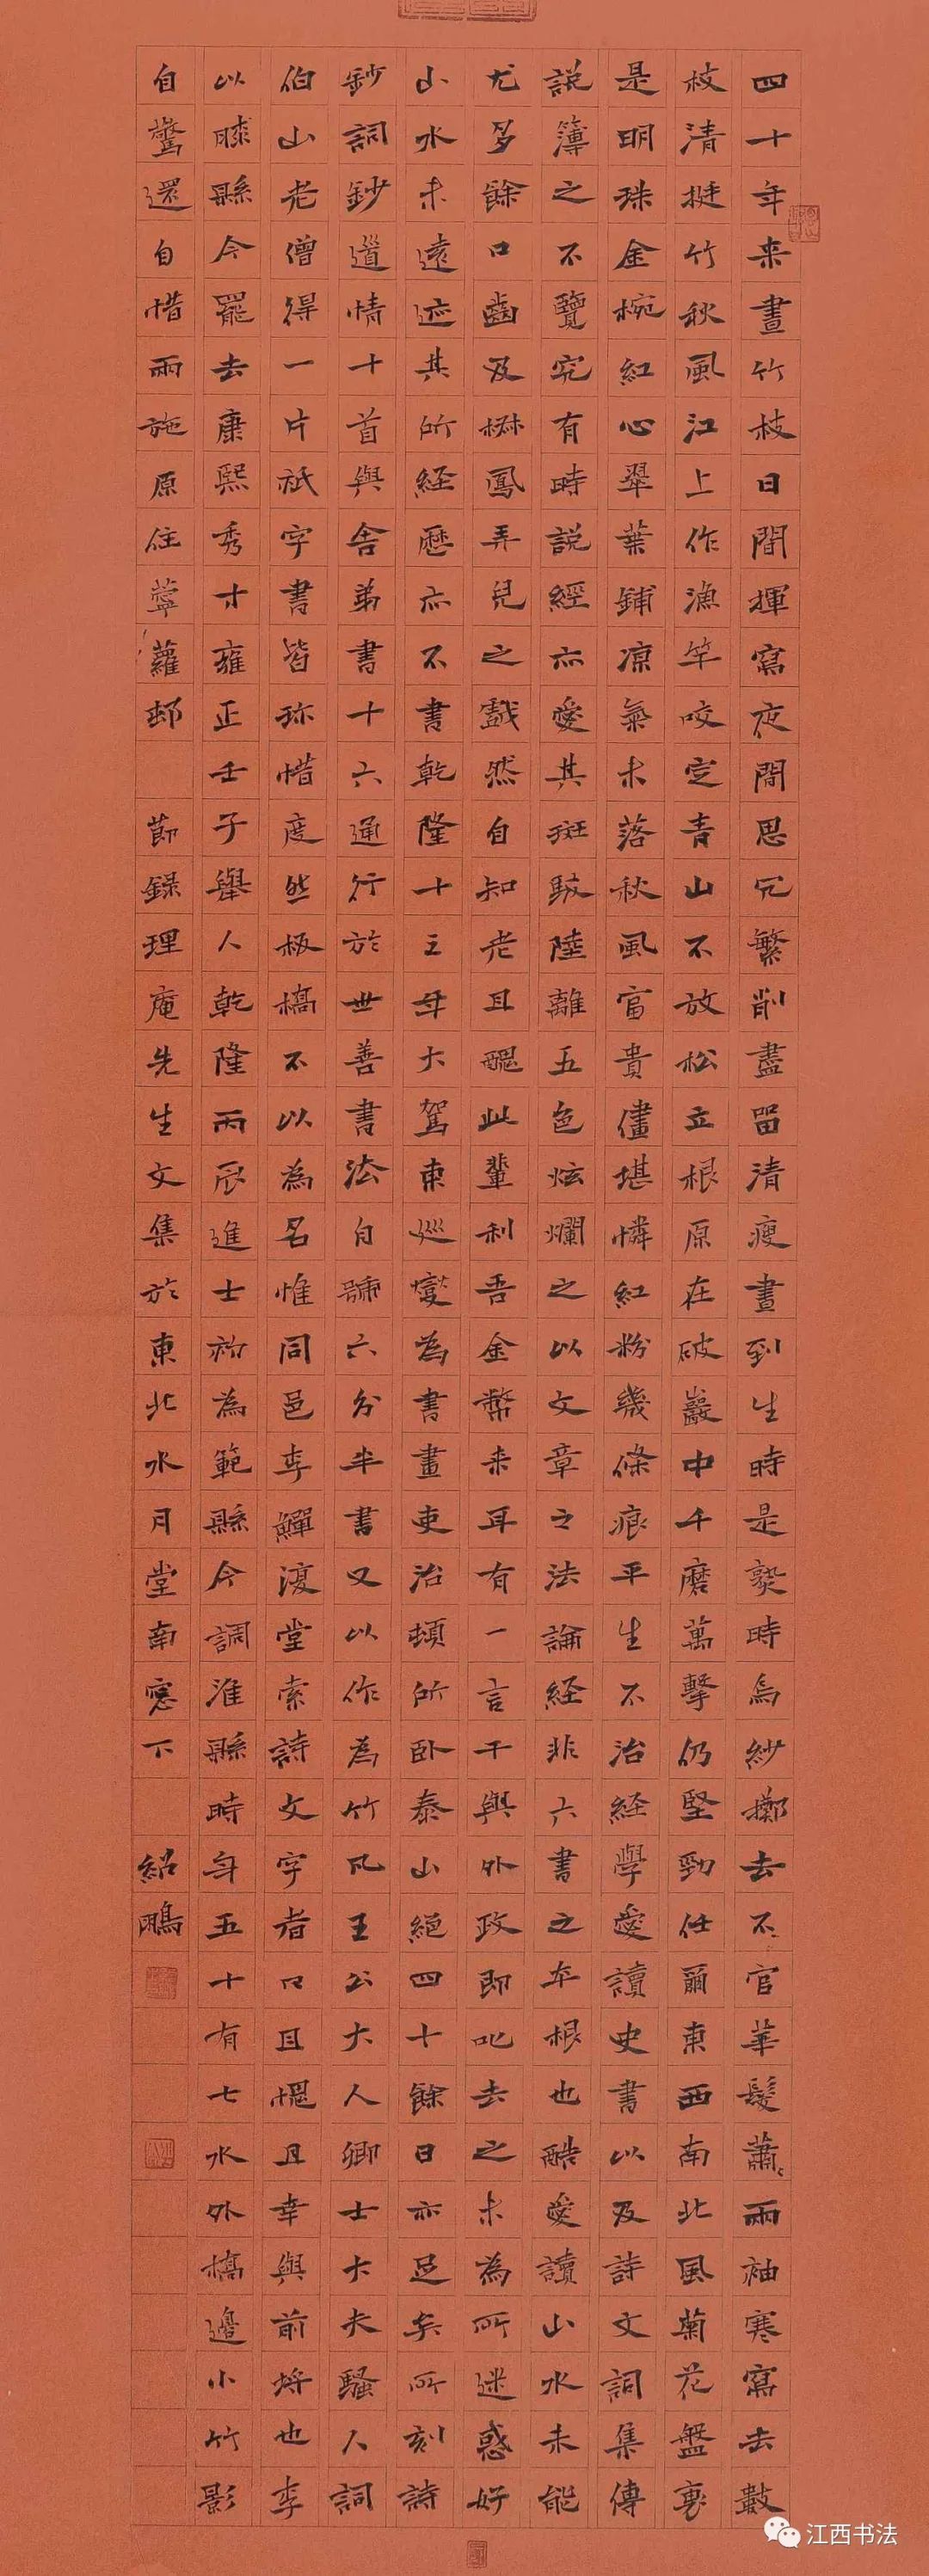 四十年来畫竹枝日間揮寫夜間思冗繁削盡留清瘦畫到生時是熟時烏紗擲去不官華髮蕭蕭兩袖寒寫去數
枝清挺竹秋風江上作漁竿咬定青山不放松立根原在破巖中千磨萬擊仍堅勁任爾東西南北風菊花盤裏
是明珠金椀紅心翠葉鋪凉氣未落秋風富貴儘堪憐紅粉幾條痕平生不治経學愛讀史書以及詩文詞集傳
說簿之不覽究有時說經亦愛其斑駮陸離五色炫爛之以文章之法論経非六書之本根也酷愛讀山水未能
尤多餘口齒及椒鳳弄兒之戲然自知老且醜此輩利吾金幣来耳有一言干與外政即叱去之未為所迷惑好
山水未遠迹其所経歷亦不書乾隆十三年大駕東巡燮為書畫吏治頓所卧泰山絕四十餘日亦足矣所刻詩
鈔詞鈔道情十首與舍弟書十六通行於世善書法自號六分半書又以作為竹凡王公大人卿士大夫騷人詞
伯山老僧得一片祇字書皆珎惜度然板橋不以為名惟同邑李鱓復堂索詩文字者口且愠且幸與前埒也李
以滕縣令罷去康熙秀才雍正壬子舉人乾隆丙辰進士初為範縣令調濰縣時年五十有七水外橋邊小竹影
自驚還自惜兩施原住薴蘿邨 節錄理庵先生文集於東北水月堂南窓下 紹鵬
江西书法